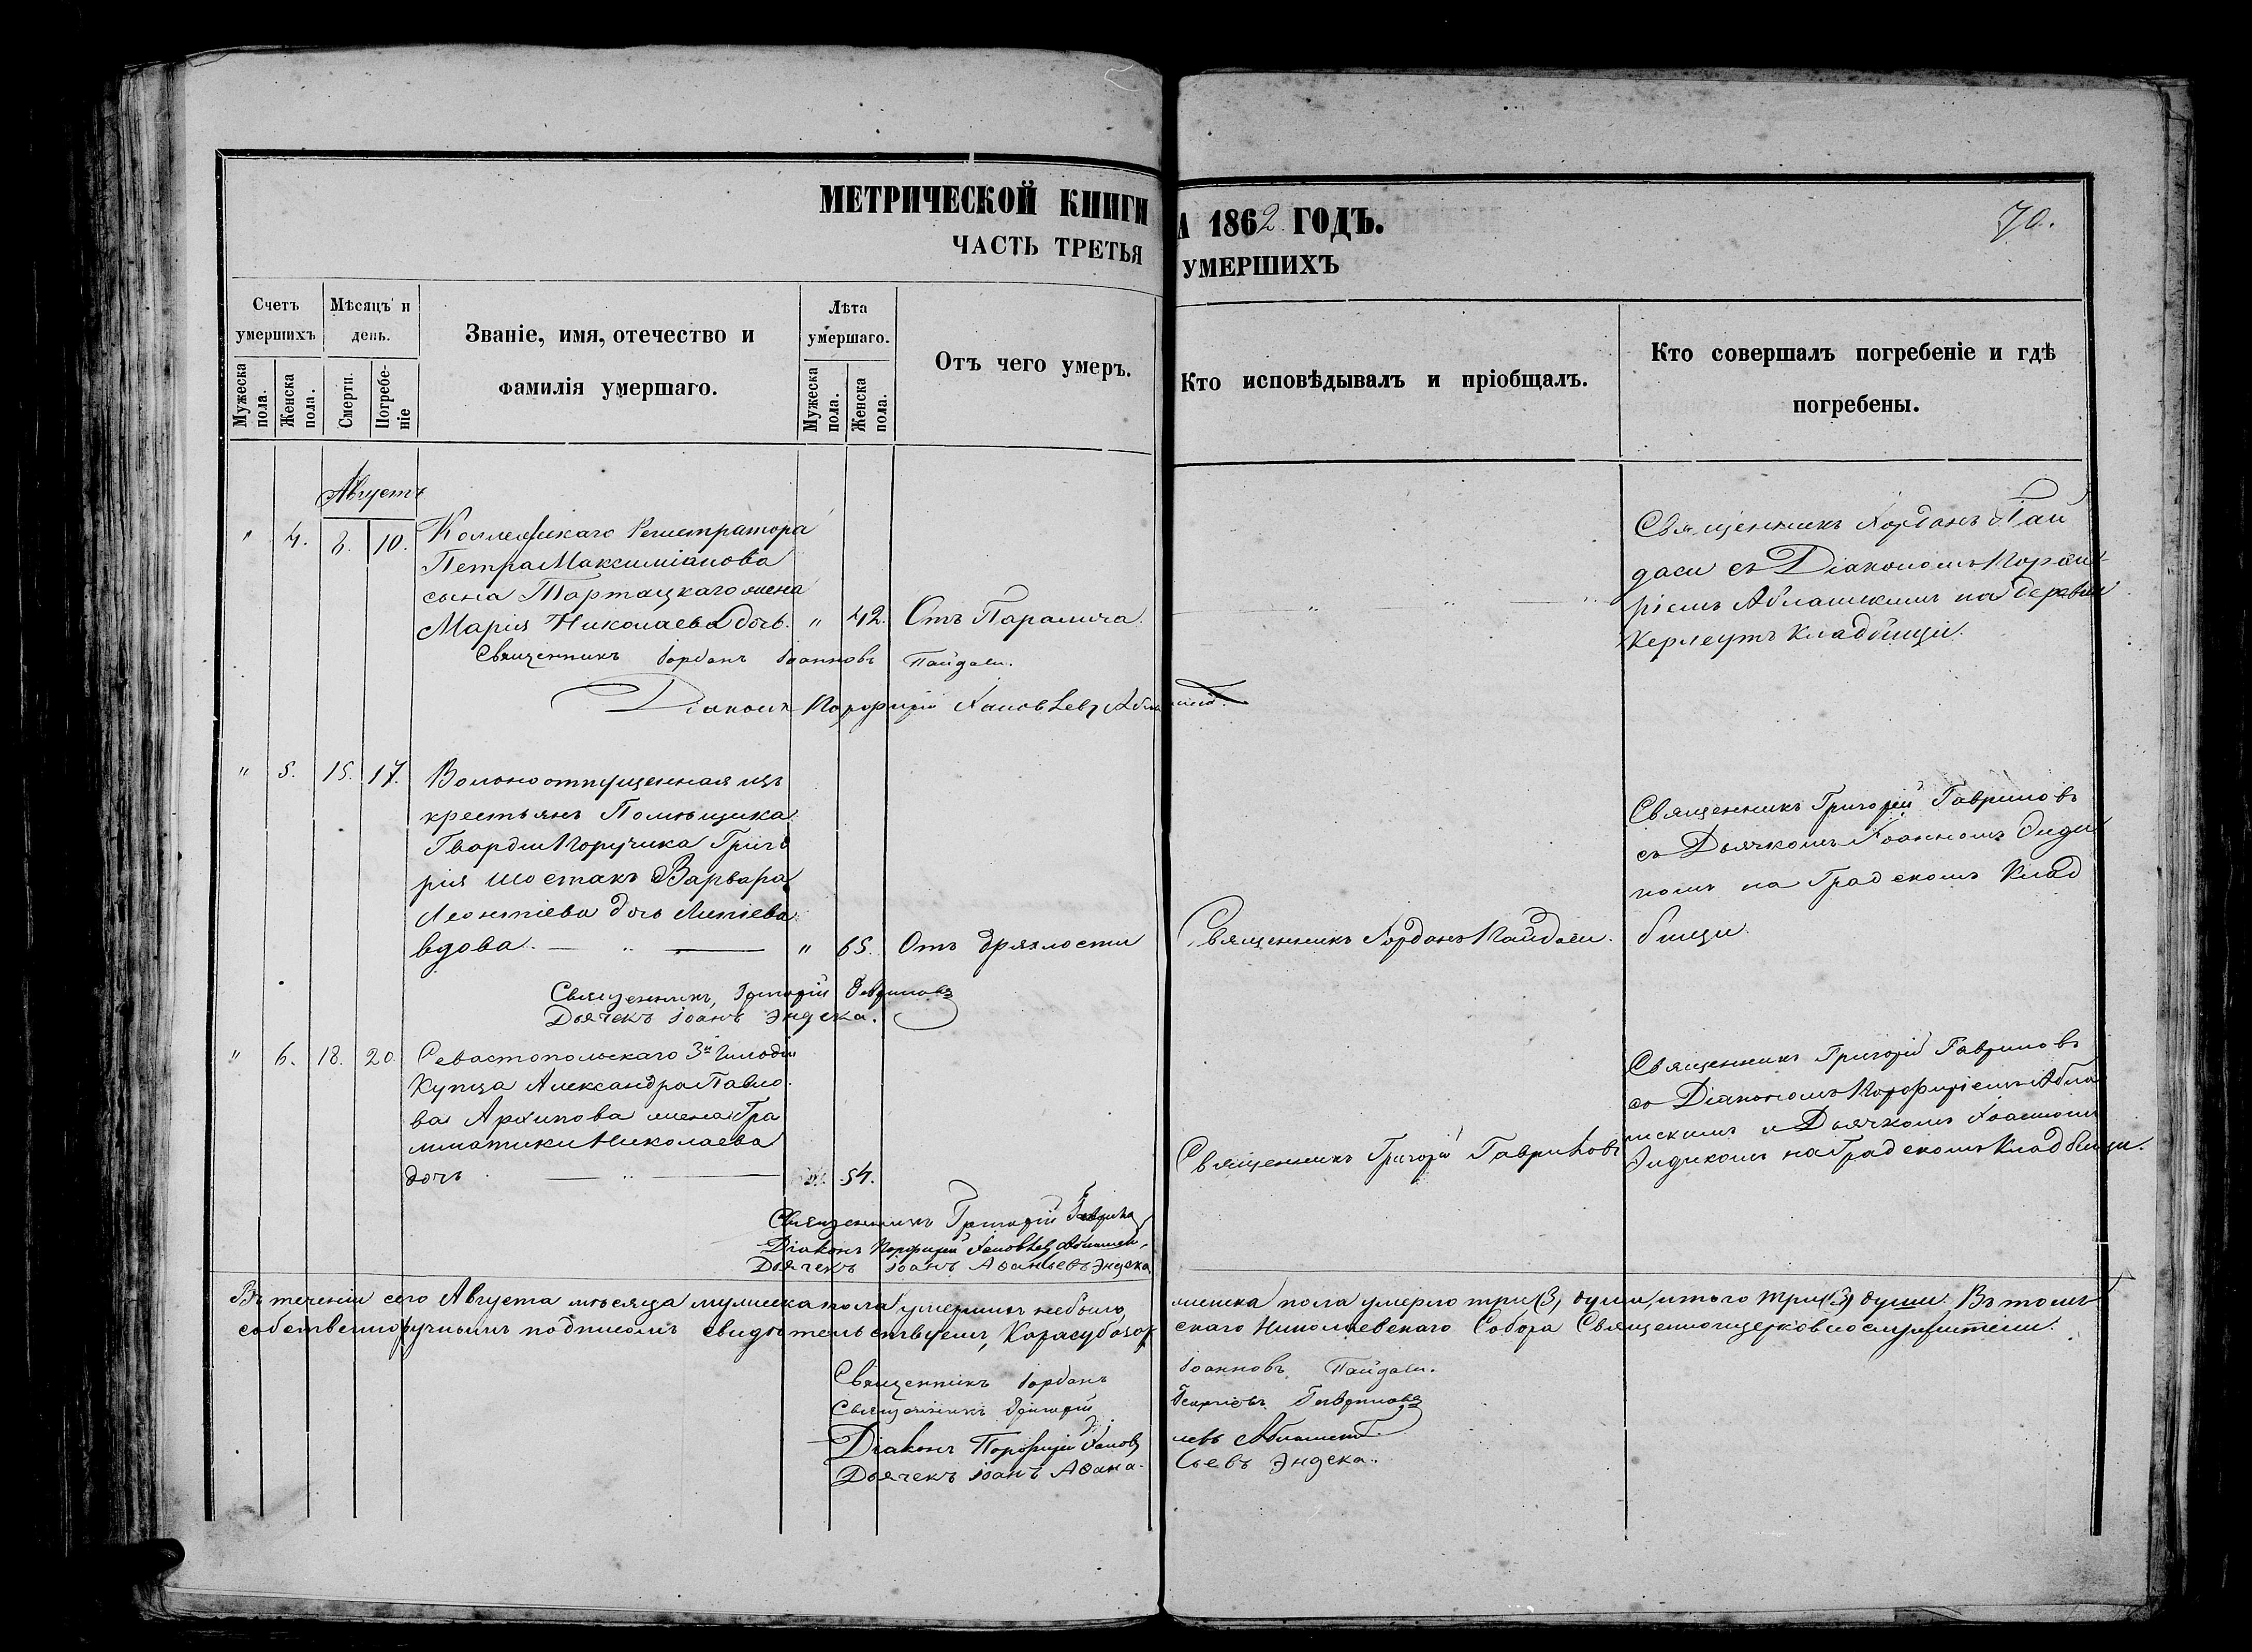 МЕТРИЧЕСКОЙ КНИГИ
А 1862 ГОДЪ.
70.
ЧАСТЬ ТРЕТЬЯ
УМЕРШИХЪ
Счетъ умершихъ
Мѣсяцъ и день.
Званіе, имя, отечество и фамилія умершаго.
Лѣта умершаго.
Отъ чего умеръ.
Кто исповѣдывалъ и пріобщалъ.
Кто совершалъ погребеніе и гдѣ погребены.
Мужеска пола.
Женска пола.
Смерти.
Погребеніе
Мужеска пола.
Женска пола.
Августъ
" 4. 8. 10.
Коллежскаго Регистратора
Петра Максиміанова
сына Тартацкаго жена
Марія Николаева дочь. " 42. Отъ Паралича.
Священникъ Іорданъ Пай
даси съ Діакономъ Порфи
ріемъ Аблашскимъ на деревни
Керлеутъ Кладбищи.
Священникъ Іорданъ Іоанновъ Пайдаси.
Діаконъ Порфирій Іаковлевъ
" 5. 15. 17.
Вольноотпущенная изъ
крестьянъ Помѣщика
Гвардіи Поручика Григо
рія Шостакъ Варвара
Леонтіева дочь
вдова. " 65. Отъ дряхлости
Священникъ Іорданъ Пайдаси.
Священникъ Григорій Гавриловъ
съ Дьячкомъ Іоанномъ
на Градскомъ Клад
бищи.
Священникъ, Григорій Гавриловъ
Дьячекъ Іоанъ Эндека.
" 6. 18. 20.
Севастопольскаго 3й Гильдіи
Купца Александра Павло
ва Архипова жена Гра
мматики Николаева
дочь " 54.
Священникъ Григорій Гавриловъ
Священникъ Григорій Гавриловъ
со Діакономъ Порфиріемъ Абла
шскимъ и Дьячкомъ Іоанномъ
на Градскомъ Кладбищи.
Священникъ Григорій
Діаконъ Порфирій Іаковлевъ
Дьячекъ Іоанъ Аѳанасьевъ Эндека
Въ теченіи сего Августа мѣсяца мужеска пола умершихъ небыло, женска пола умерло три (3) души, итого три (3) души. Въ томъ
собственноручнымъ подписомъ свидѣтельствуемъ, Карасубазарскаго Николаевскаго Собора Священноцерковнослужители.
Священникъ Іорданъ Іоанновъ Пайдаси.
Священникъ Григорій Георгіевъ Гавриловъ
Діаконъ Порфирій Іаковлевъ
Дьячекъ Іоанъ Аѳанасьевъ Эндека.